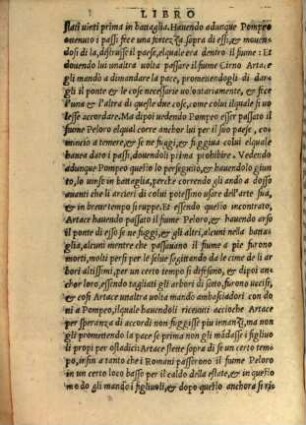 LIBRO
stati vinti prima in battaglia. Havendo adunque Pompeo
ottenuto i passi fece una fortezza sopra di essi, & movendosi
dosi di la, destrusse il paese, elquale era dentro il fiume: Et
dovendo lui unaltra volta passare il fiume Cirno Artace
gli mandò a dimandare la pace, promettendogli di dargli
il ponte & le cose necessarie volontariamente, & fece
l'una & l'altra di queste due cose, come colui ilquale si volesse
accordare. Ma dipoi vedendo Pompeo esser passato il
fiume Peloro elqual corre anchor lui per il suo paese, cominciò
a temere, & se ne fuggi, & fuggiva colui elquale
havea dato i passi, dovendoli prima prohibire. Vedendo
adunque Pompeo questo lo perseguitò, & havendolo giunto,
lo vinse in battaglia, perche correndo gli andò a dosso
avanti che li arcieri di colui potessino usare dell'arte sua,
& in breve tempo si ruppe. Et essendo questo incontrato,
Artace havendo passato il fiume Peloro, & havendo arso
il ponte di esso se ne fuggi, & gli altri, alcuni nella battaglia,
alcuni mentre che passavano il fiume a pie furono
morti, molti persi per le selve sagittando da le cime de li arbori
altissimi, per un certo tempo si difesino, & dipoi anchor
loro, essendo tagliati gli arbori di sotto, furono uccisi,
& cosi Artace unaltra volta mando ambasciadori con doni
a Pompeo, ilquale havendoli ricevuti accioche Artace
per speranza di accordi non fuggisse piu innanzi, ma non
gli promettendo la pace se prima non gli mãdasse i figliuoli
propi per ostadici: Artace stette sopra di se un certo tempo,
insin a tanto che i Romani passerono il fiume Peloro
in un certo loco basso per il caldo della estate, & in questo
modo gli mandò i figliuoli, & dopo questo anchora si